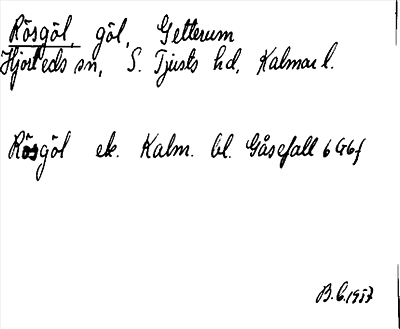 Rösgöl, göl, Getterum
Hjorteds sn, S. Tjusts hd, Kalmar l.
Rösgöl ek. Kalm. bl. Gåsefall 6G6f
B.C. 1957